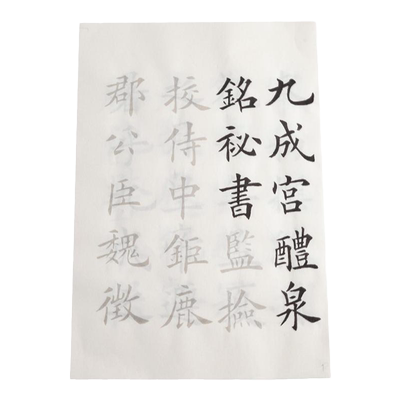 九成宮醴泉
銘祕書監撿
挍侍中鉅鹿
郡公臣魏徵